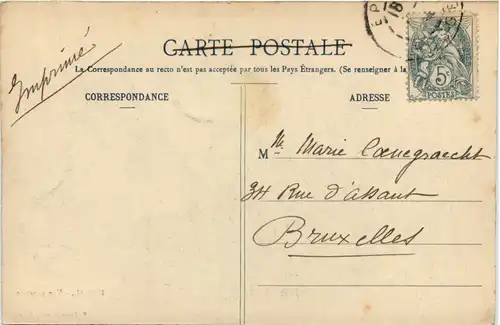 CARTE POSTALE
La Correspondance au recto n'est pas acceptée par tous les Pays Étrangers. (Se renseigner à la
Imprimé
CORRESPONDANCE
ADRESSE
5c
POSTES
Mlle Marie
34 Rue d'assaut
Bruxelles